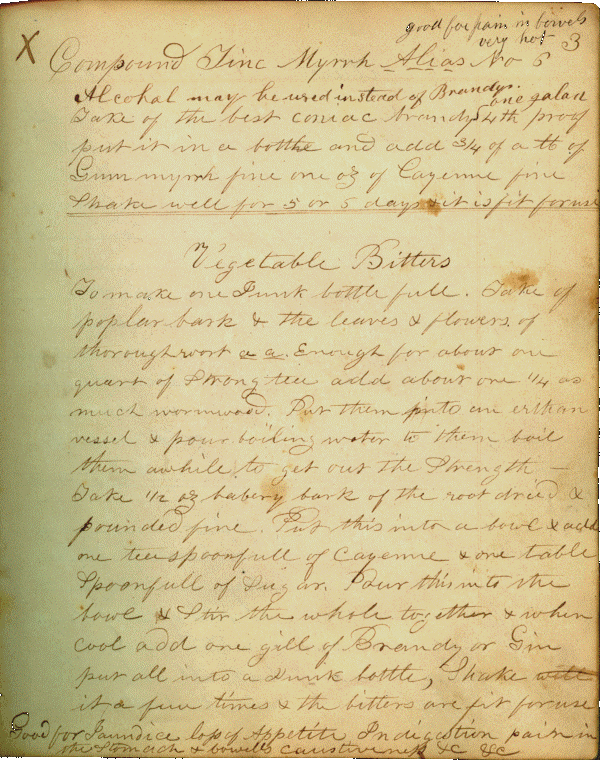 good for pain in bowels
very hot 3
X
Compound Tinc Myrrh Alias No 6
Alcohal may be used instead of Brandy.
Take of the best coniac brandy one galan 4th proof
put it in a bottle and add 3/4 of a lb of
Gum myrrh fine one oz of Cayenne fine
Shake well for 5 or 5 days & it is fit for use
Vegetable Bitters
To make one Junk bottle full. Take of
poplar bark & the leaves & flowers of
thoroughwort a a. Enough for about one
quart of Strong tea add about one 1/4 as
much wormwood. Put them into an erthan
vessel & pour boiling water to them boil
them awhile to get out the Strength —
Take 1/2 oz babery bark of the root dried &
pounded fine. Put this into a bowl & add
one teespoonfull of Cayenne & one table
Spoonfull of Sugar. Pour this into the
bowl & Stir the whole together & when
cool add one gill of Brandy or Gin
put all into a Junk bottle, Shake will
it a few times & the bitters are fit for use
Good for Jaundice loss of Appetite Indigestion pain in
the Stomach & bowels caustiveness &c &c